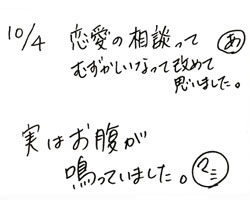 10/4 恋愛の相談って あ
むずかしいなって改めて
思いました。
実はお腹が
鳴っていました。マミ